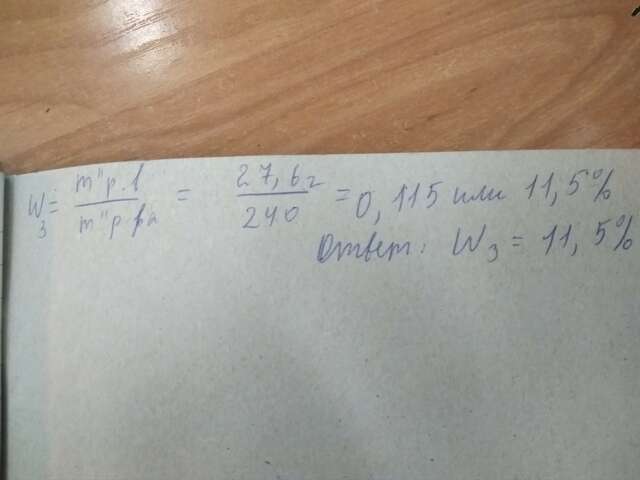 W₃ = m"р.в / m"р.ра = 27,6г / 240 = 0,115 или 11,5%
Ответ: W₃ = 11,5%